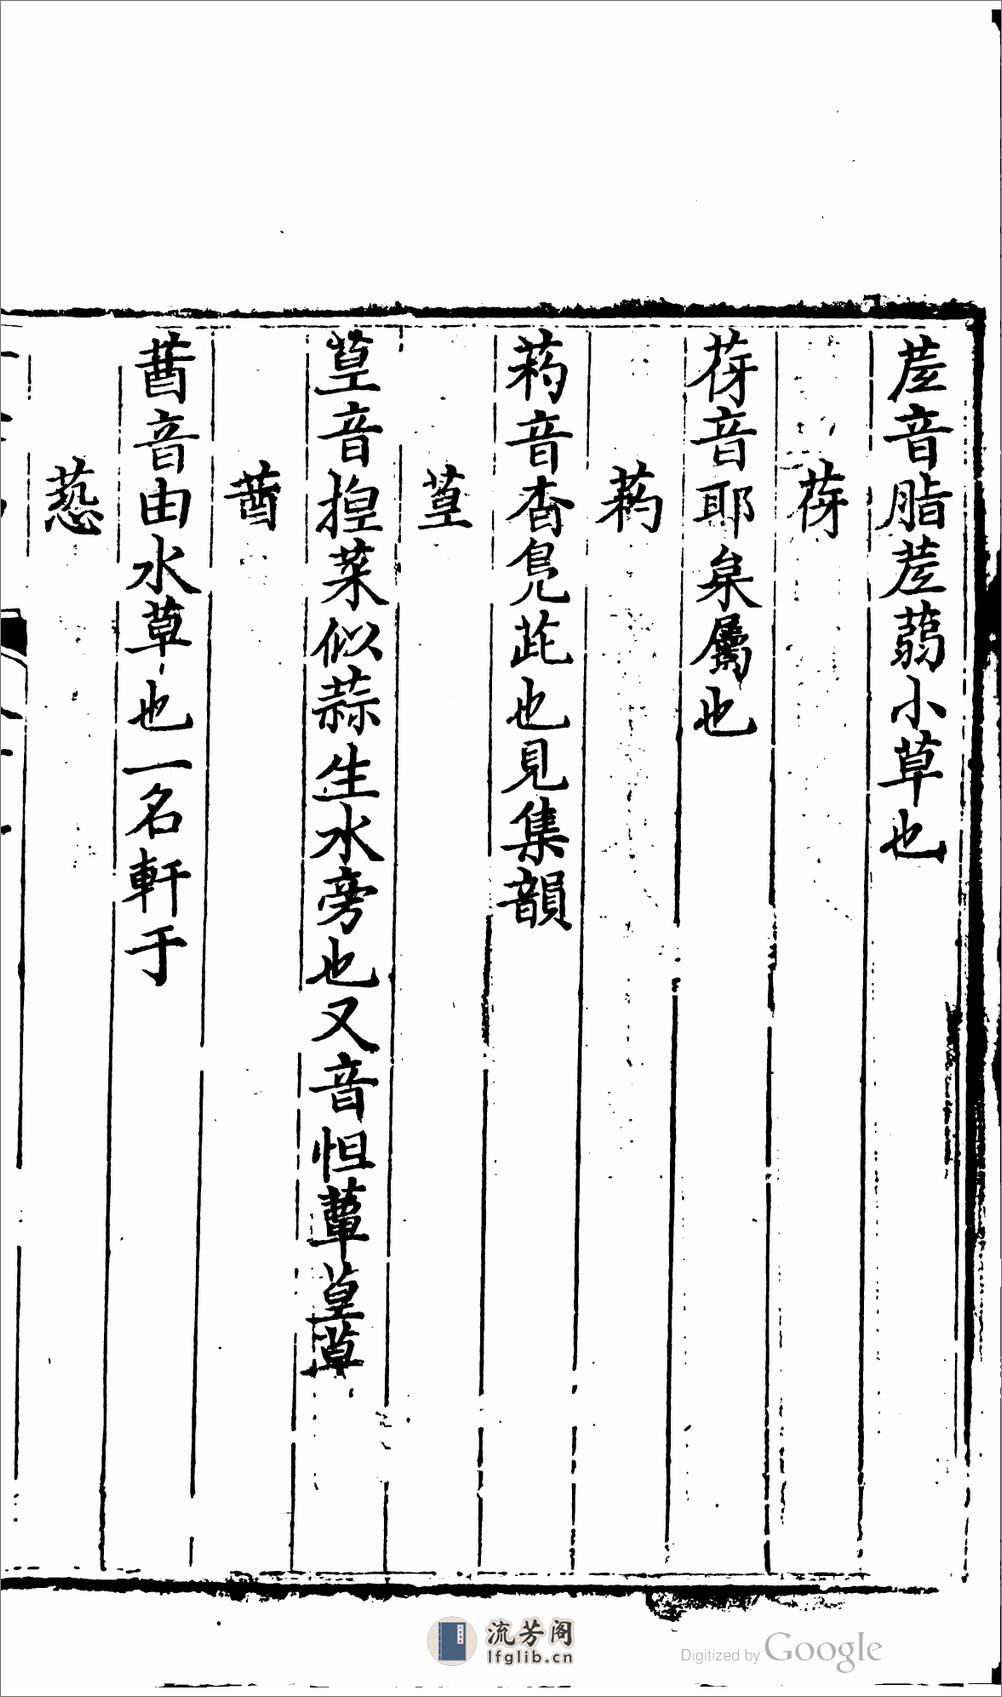 荎音脂荎蒻小草也
䓉
䓉音耶枲屬也
葯
葯音杳鳧茈也見集韻
荁
荁音揘菜似蒜生水旁也又音怛蕈荁草
莤
莤音由水草也一名軒于
流芳阁
lfglib.cn
Digitized by Google